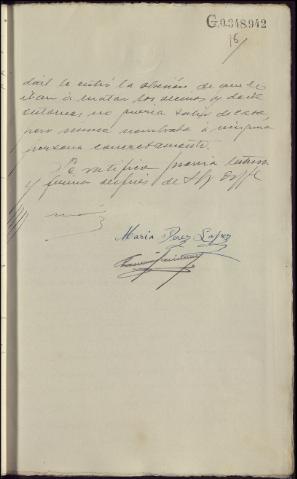 G.0.348.942
16
dad le entró la obsesión de que le
iban a matar los vecinos y desde
entonces no quería salir de casa,
pero nunca nombraba a ninguna
persona concretamente.
Se ratifica previa lectura
y firma después de S. Sª. Doy fe
María Pérez López